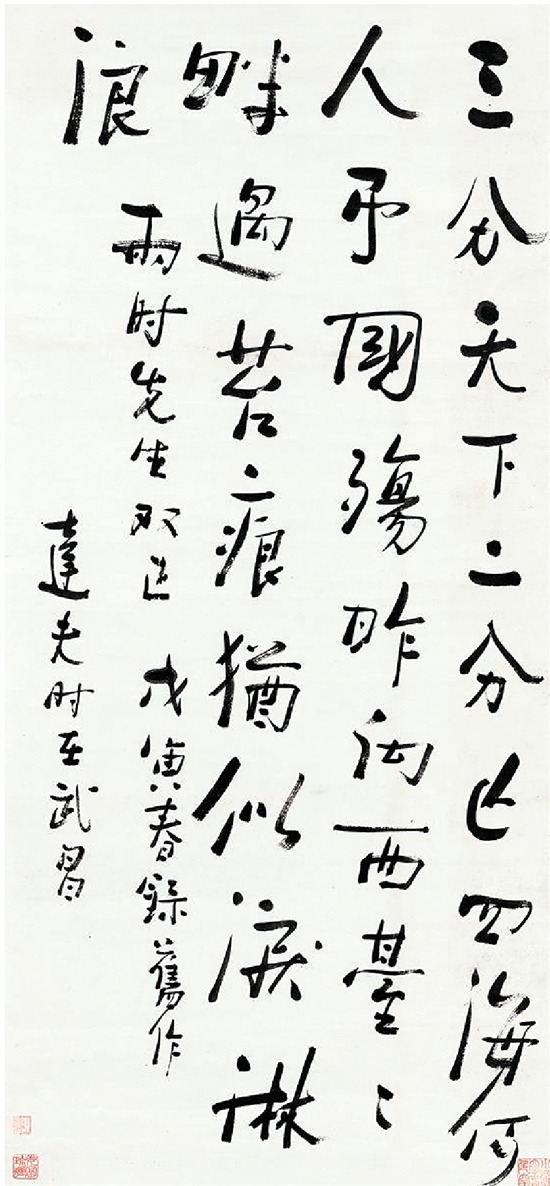 三分天下二分亡四海何
人弔國殤昨向西臺〻
畔過苔痕猶似淚淋
浪
雨时先生双正 戊寅春録舊作
達夫时在武昌